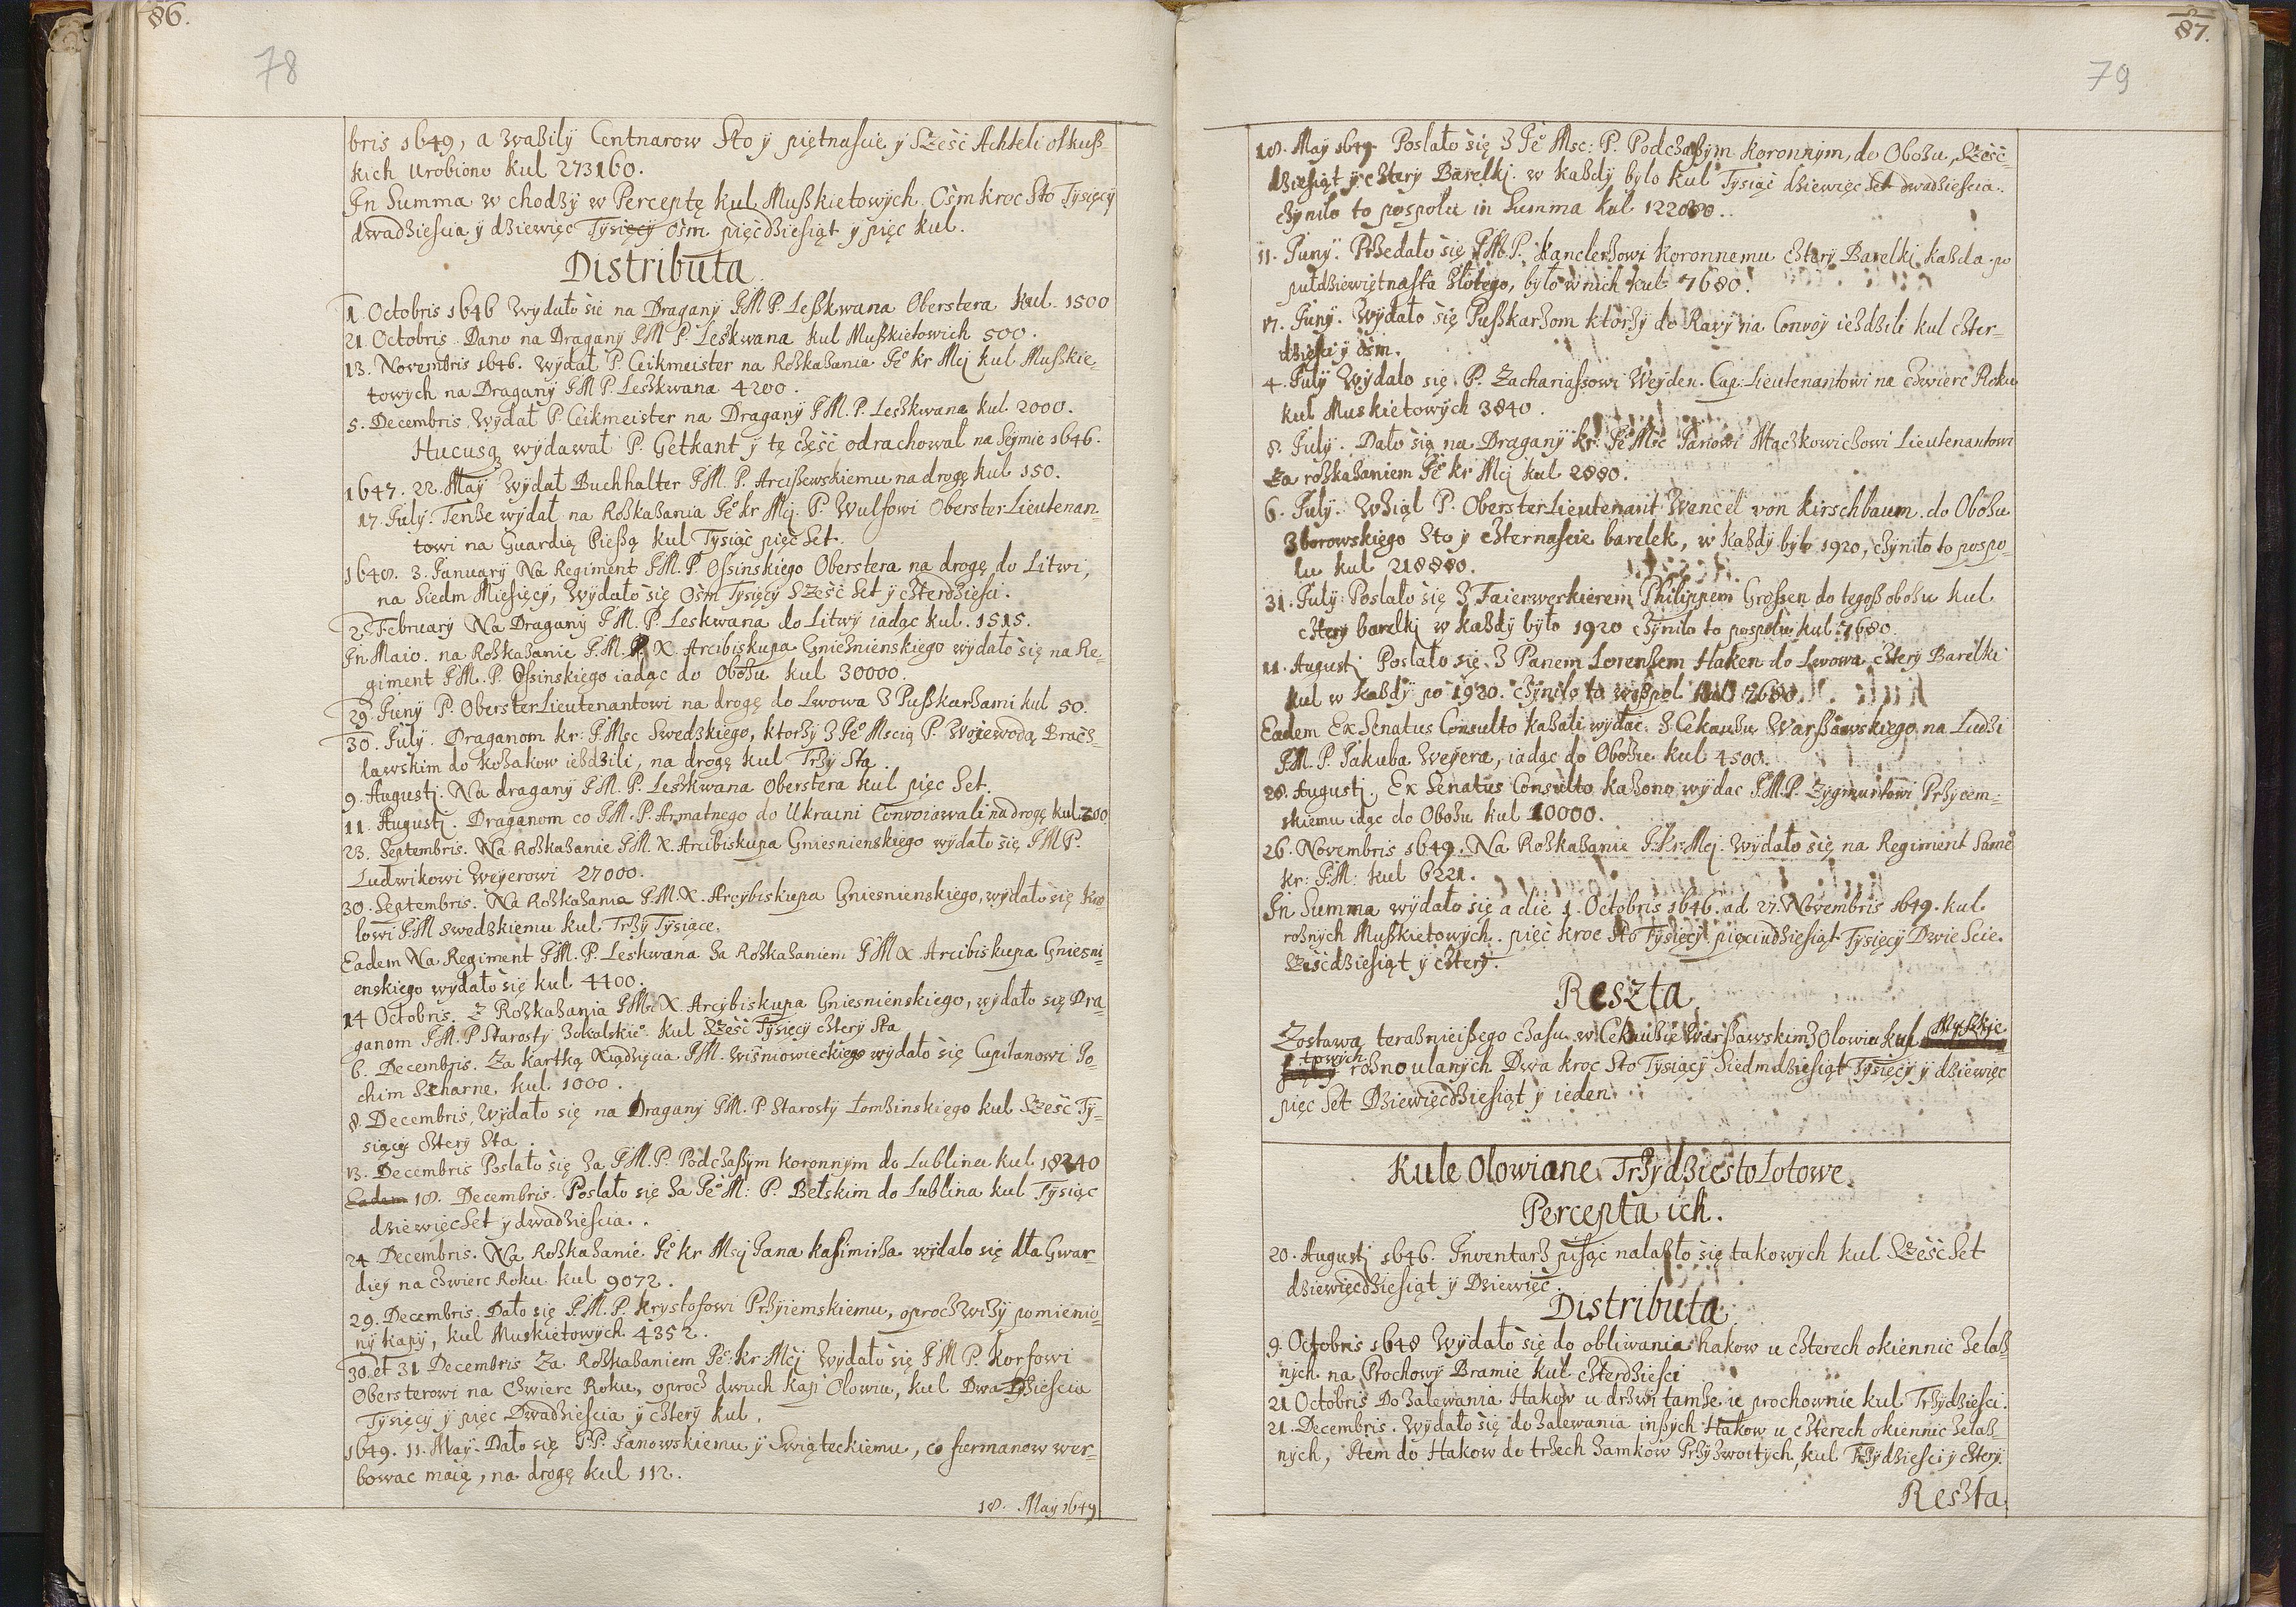 86.
78
bris 1649, a ważiły Centnarow Sto y piętnaście y Sześć Achteli olkuß-
kich Urobiono kul 273160.
In Summa w chodzy w Perceptę kul Mußkietowych Ośmkroc Sto Tysięcy
dwadzieścia y dziewięc Tysięcy ośm pięcdziesiąt y pięc kul.
Distributa.
1. Octobris 1646 Wydało się na Dragany JM P. Leßkwana Oberstera kul 1500
21. Octobris Dano na Dragany JM P. Leskwana kul Mußkietowich 500.
13. Novembris 1646. wydał P. Ceikmeister na Roskazania Jeo kr Mci kul Mußkie-
towych na Dragany JM P. Leszkwana 4200.
5. Decembris Wydał P. Ceikmeister na Dragany J.M. P. Leszkwana kul 2000.
Hucusq wydawał P. Getkant y tę część odrachował na Sejmie 1646.
1647. 22. May Wydał Buchhalter J.M. P. Arcißewskiemu na drogę kul 150.
17. July. Tenże wydał na Roskazania Jeo kr Mci. P. Wulfowi Oberster Lieutenan-
towi na Guardią Pießą kul Tysiąc pięc Set.
1648. 3. January Na Regiment J.M. P. Ossinskiego Oberstera na drogę do Litwi,
na Siedm Miesięcy, Wydało się Ośm Tysięcy Sześc Set y czterdziesci.
2. February Na Dragany J.M. P. Leskwana do Litwy iadąc kul. 1515.
In Maio. na Roskazanie J.M. X. Arcibiskupa Gnieznienskiego wydało się na Re-
giment J.M. P. Ossinskiego iadąc do Obozu kul 30000.
29. Juny P. Oberster Lieutenantowi na drogę do Lwowa z Pußkarzami kul 50.
30. July. Draganom kr: J.Msc Swedzkiego, ktorzy z Jeo Mscią P. Woiewodą Bracz-
lawskim do kozakow iezdzili, na drogę kul Trzy Sta.
9. Augusti. Na dragany J.M. P. Leszkwana Oberstera kul pięc Set.
11. Augusti. Draganom co J.M. P. Armatnego do Ukraini Convoiawali na drogę kul 200
23. Septembris. Na Roskazanie J.M. X. Arcibiskupa Gniesnienskiego wydało się J.M P.
Ludwikowi Weyerowi 27000.
30. Septembris. Na Roskazania J.M. X. Arcybiskupa Gniesnienskiego, wydało się Kro-
lowi J.M Swedzkiemu kul Trzy Tysiące.
Eadem Na Regiment J.M. P. Leskwana za Roskazaniem J.M X. Arcibiskupa Gniesni-
enskiego wydało się kul 4400.
14 Octobris. Z Roskazania J.M. X. Arcybiskupa Gniesnienskiego, wydało się Dra-
ganom J.M. P Starosty Sokalskieo kul Sześć Tysięcy cztery Sta
6. Decembris. Za kartką Xiądzęcia J.M. Wiśniowieckiego wydało się Capitanowi Jo-
chim Scharne, kul 1000.
8. Decembris, Wydało się na Dragany J.M. P. Starosty Łomzinskiego kul Sześć Ty-
sięcy cztery Sta.
13. Decembris Posłało się za J.M. P. Podczaßym koronnym do Lublina kul 18240
Eadem 18. Decembris. Posłało się za Jeo M: P. Bełskim do Lublina kul Tysiąc
dziewięcSet y dwadziescia.
24 Decembris. Na Roskazanie Jeo kr Msci Jana kasimirza wydało się dla Gwar-
diey na cźwierc Roku kul 9072.
29. Decembris. Dało się J.M. P. krystofowi Przyiemskiemu, oprocz wizy pomienio-
ny kapy, kul Muskietowych 4352.
30. et 31. Decembris Za Roskazaniem Jeo: kr Mci Wydało się J M P. Korfowi
Obersterowi na Cźwierc Roku, oprocz dwuch kap Olowiu, kul Dwa Dzieścia
Tysięcy y pięc Dwadziescia y cztery kul.
1649. 11. May. Dało się P.P. Janowskiemu y Swiąteckiemu, co fiermanow wer-
bowac maią, na drogę kul 112.
18. May 1649
87.
79
18. May 1649 Posłało się z Jeo Msc: P. Podczaßym koronnym, do Obozu, Sześc-
dziesiąt y cztery Barelki. w każdy bylo kul Tysiąc dziewięc Set dwadziescia.
czyniło to pospołu in Summa kul 122880.
11. Juny. Przedało się J.M. P. Kanclerzowi Koronnemu cztery Barelki każda po
pułdziewiętnasta złotego, było w nich kul 7680.
17. Juny. Wydało się Pußkarzom ktorzy do Rawy na Convoy iezdzili kul czter-
dzieści y ośm.
4. July Wydało się P. Zachariassowi Weyden. Cap: Lieutenantowi na cźwierc Roku
kul Muskietowych 3840.
8. July. Dało się na Dragany kr: Jeo Msc Panowi Maczkowiczowi Lieutenantowi
Za roskazaniem Jeo kr Mci kul 2880.
6. July. Wźiął P. Oberster Lieutenant Wencel von Kirschbaum do Obozu
Zborowskiego Sto y czternaście barełek, w każdy było 1920, czyniło to pospo-
łu kul 218880.
31. July. Posłało się z Faierwerkierem Philippem Großen do tegoß obozu kul
cztery barelki w każdy było 1920 czyniło to pospolu kul 7680.
11. Augusti Posłało się z Panem Lorenßem Haken do Lwowa cztery Barelki
kul w każdy po 1920. czyniło to wespol kul 7680.
Eadem Ex Senatus Consulto kazali wydac z Cekauzu Warßawskiego na Ludzi
J.M. P. Jakuba Weyera, iadąc do Obozu kul 4500.
28. Augusti. Ex Senatus Consulto kazono wydac J.M. P. Zygmuntowi Przyiem-
skiemu idąc do Obozu kul 10000.
26. Novembris 1649. Na Roskazanie J.kr Mci. Wydało się na Regiment Sameo
kr: J.M: kul 6221.
In Summa wydało się a die 1. Octobris 1646. ad 27. Novembris 1649. kul
roznych Mußkietowych. pięć kroc sto Tysięcy pięciudziesiąt Tysięcy Dwie Scie.
Sześcdziesiąt y cztery.
Reszta
Zostawa teraznieißego czasu w Cekauzie Warßawskim z Olowiu kul Myszkie
towych rozno ulanych Dwa kroc Sto Tysięcy Siedmdziesiąt Tysięcy y dziewięc
pięc Set Dziewięcdziesiąt y ieden.
Kule Olowiane Trzydziestołotowe
Percepta ich.
20. Augusti 1646. Inventarz pisąc nalazło się takowych kul SześcSet
dziewięcdziesiąt y Dziewięć.
Distributa
9. Octobris 1648 Wydało się do obliwania hakow u czterech okiennic zelaz-
nych na Prochowy Bramie kul czterdziesci
21 Octobris Do zalewania Hakow u drzwi tamze u prochownie kul Trzydziesci.
21. Decembris. Wydało się do zalewania inßych Hakow u czterech okiennic zelaz-
nych, Item do Hakow do trzech zamkow Przyzwoitych, kul Trzydziesci y cztery.
Reszta.